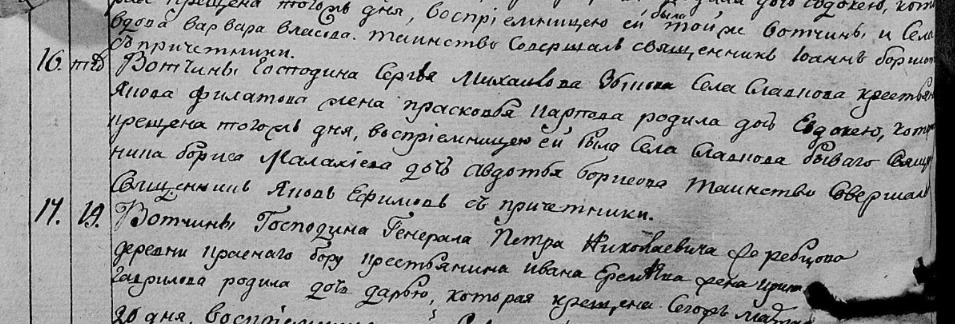 крещена тогожъ дня, воспріемницею ей была той же вотчины и села
вдова варвара власова. таинство Содержалъ священникъ Iоаннъ
съ причетники.
16. Вотчины Господина Сергѣя Михаилова Села Сладкова крестьян
Якова филатова жена прасковья карпова родила дочь Евдокею, котор
крещена тогожъ дня, воспріемницею ей была Села Сладкова бываго Свящ
ника бориса Малахіева дочь Авдотья борисова таинство Совершалъ
Священникъ Яковъ Ефимовъ съ причетники.
17. 19. Вотчины Господина Генерала Петра Николаевича
деревни краснаго бору крестьянина ивана жена ирин
гаврилова родила дочь дарью, которая крещена Сегожъ
20 дня,